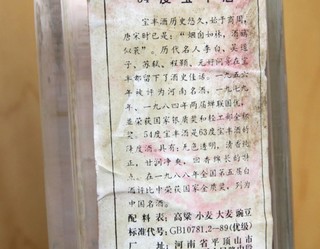 54度宝丰酒
宝丰酒历史悠久，始于商周，
唐宋时已是："烟囱如林，酒旗
似云"。历代名人李白、吴道
子、苏轼、程颢、元好问等在宝
丰都留下了酒史佳话。一九五六
年被评为河南名酒，一九七九
年、一九八四年两届蝉联国优，
并荣获国家银质奖和轻工部金
奖。54度宝丰酒是63度宝丰酒的
降度酒，具有：无色透明，清香纯
正，甘润净爽，回香绵长的特
点。在一九八八年全国第五届白
酒评比中荣获国家金质奖，列为
中国名酒。
配料表：高粱 小麦 大麦 豌豆
标准代号：GB10781.2—89(优级)
厂址：河南省平顶山市